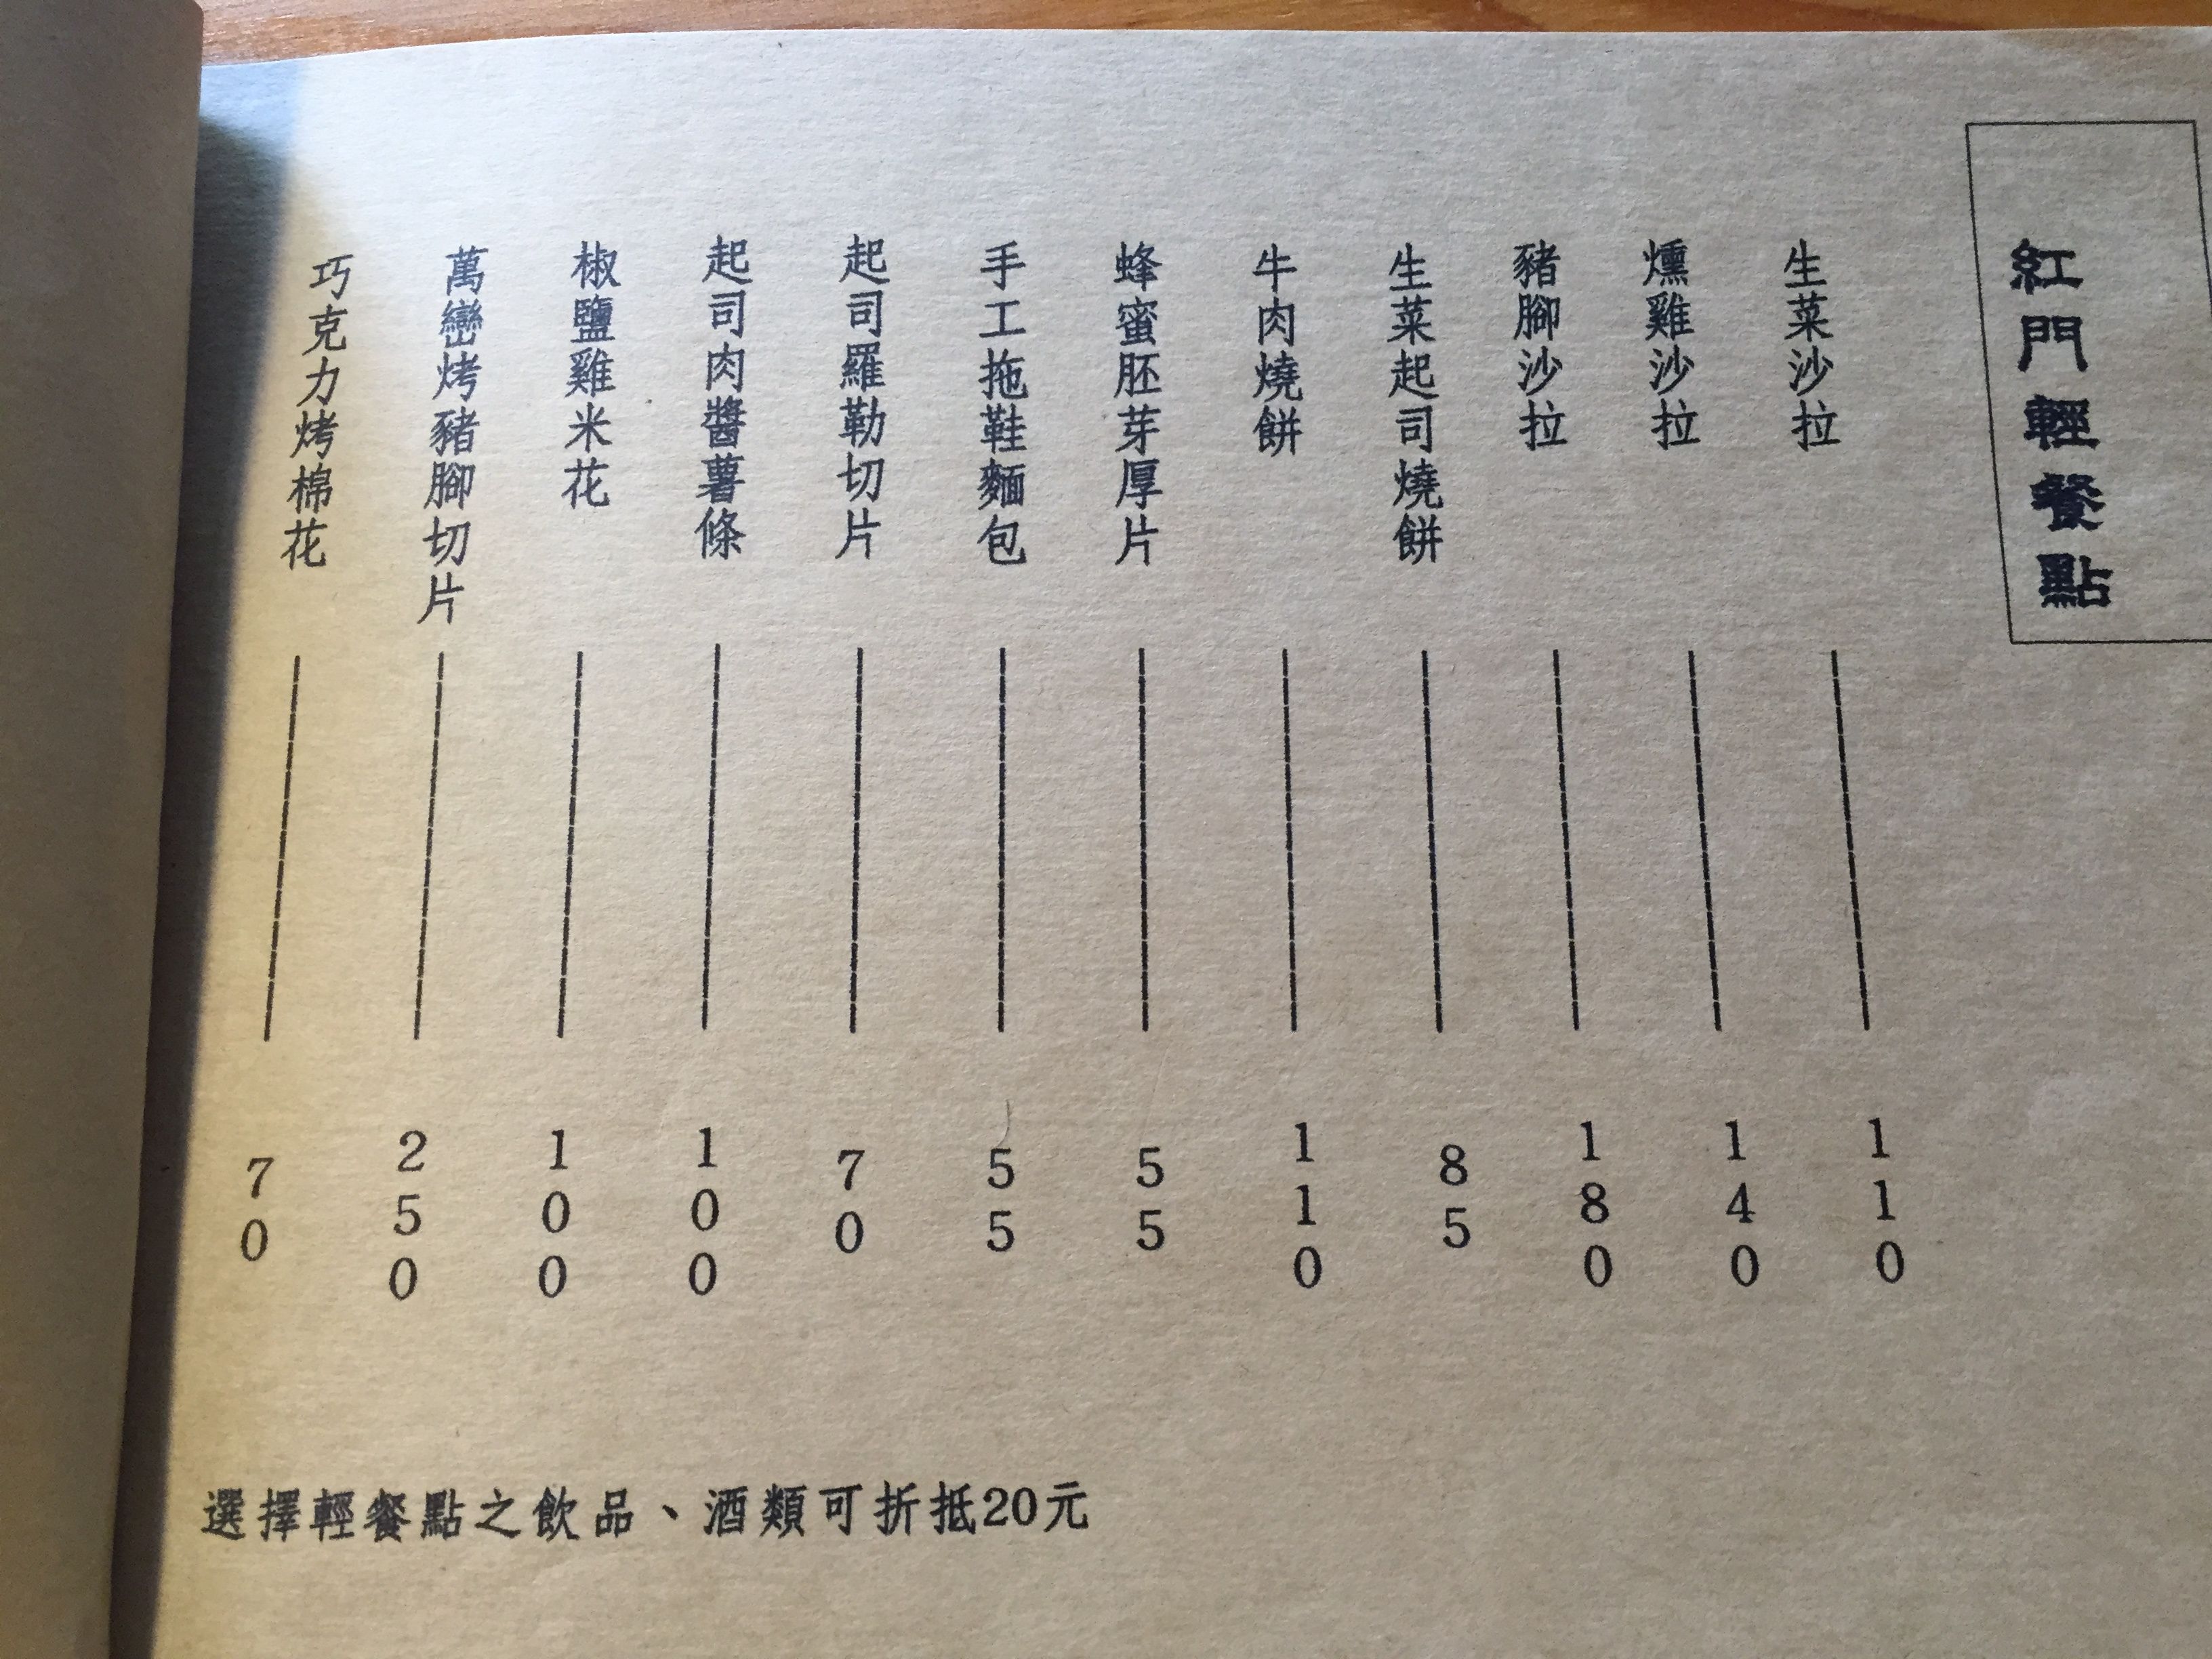 紅門輕餐點
生菜沙拉 110
燻雞沙拉 140
豬腳沙拉 180
生菜起司燒餅 85
牛肉燒餅 110
蜂蜜胚芽厚片 55
手工拖鞋麵包 55
起司羅勒切片 70
起司肉醬薯條 100
椒鹽雞米花 100
萬巒烤豬腳切片 250
巧克力烤棉花 70
選擇輕餐點之飲品、酒類可折抵20元